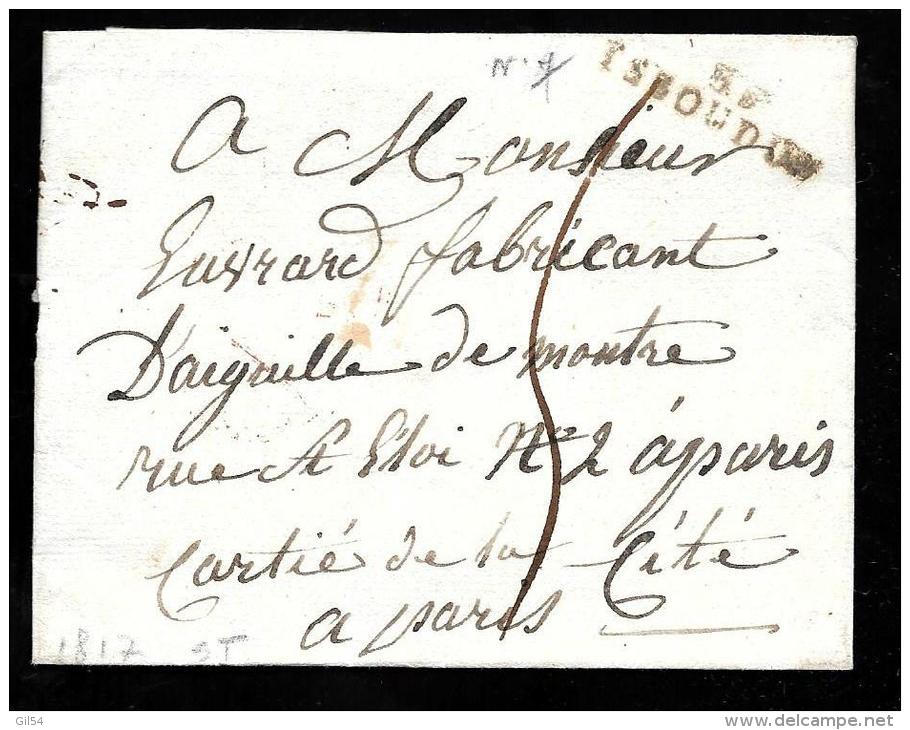 N° 7
ISSOUDUN
A Monsieur
Euvrard fabricant
D'aiguille de montre
rue St Eloi N° 2 à paris
Cartié de la Cité
a paris
1817
Gil54
www.delcampe.net